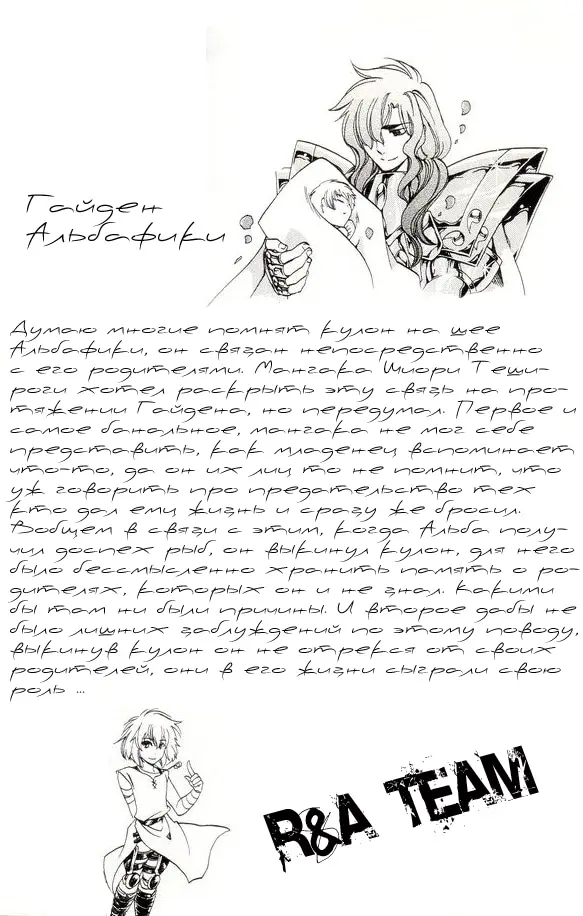 Гайден
Альбафики
Думаю многие помнят кулон на шее
Альбафики, он связан непосредственно
с его родителями. Мангака Шиори Теши-
роги хотел раскрыть эту связь на про-
тяжении Гайдена, но передумал. Первое и
самое банальное, мангака не мог себе
представить, как младенец вспоминает
что-то, да он их лиц то не помнит, что
уж говорить про предательство тех
кто дал ему жизнь и сразу же бросил.
Вобщем в связи с этим, когда Альба полу-
чил доспех рыб, он выкинул кулон, для него
было бессмысленно хранить память о ро-
дителях, которых он и не знал. Какими
бы там ни были причины. И второе дабы не
было лишних заблуждений по этому поводу,
выкинув кулон он не отрекся от своих
родителей, они в его жизни сыграли свою
роль ...
R&A TEAM